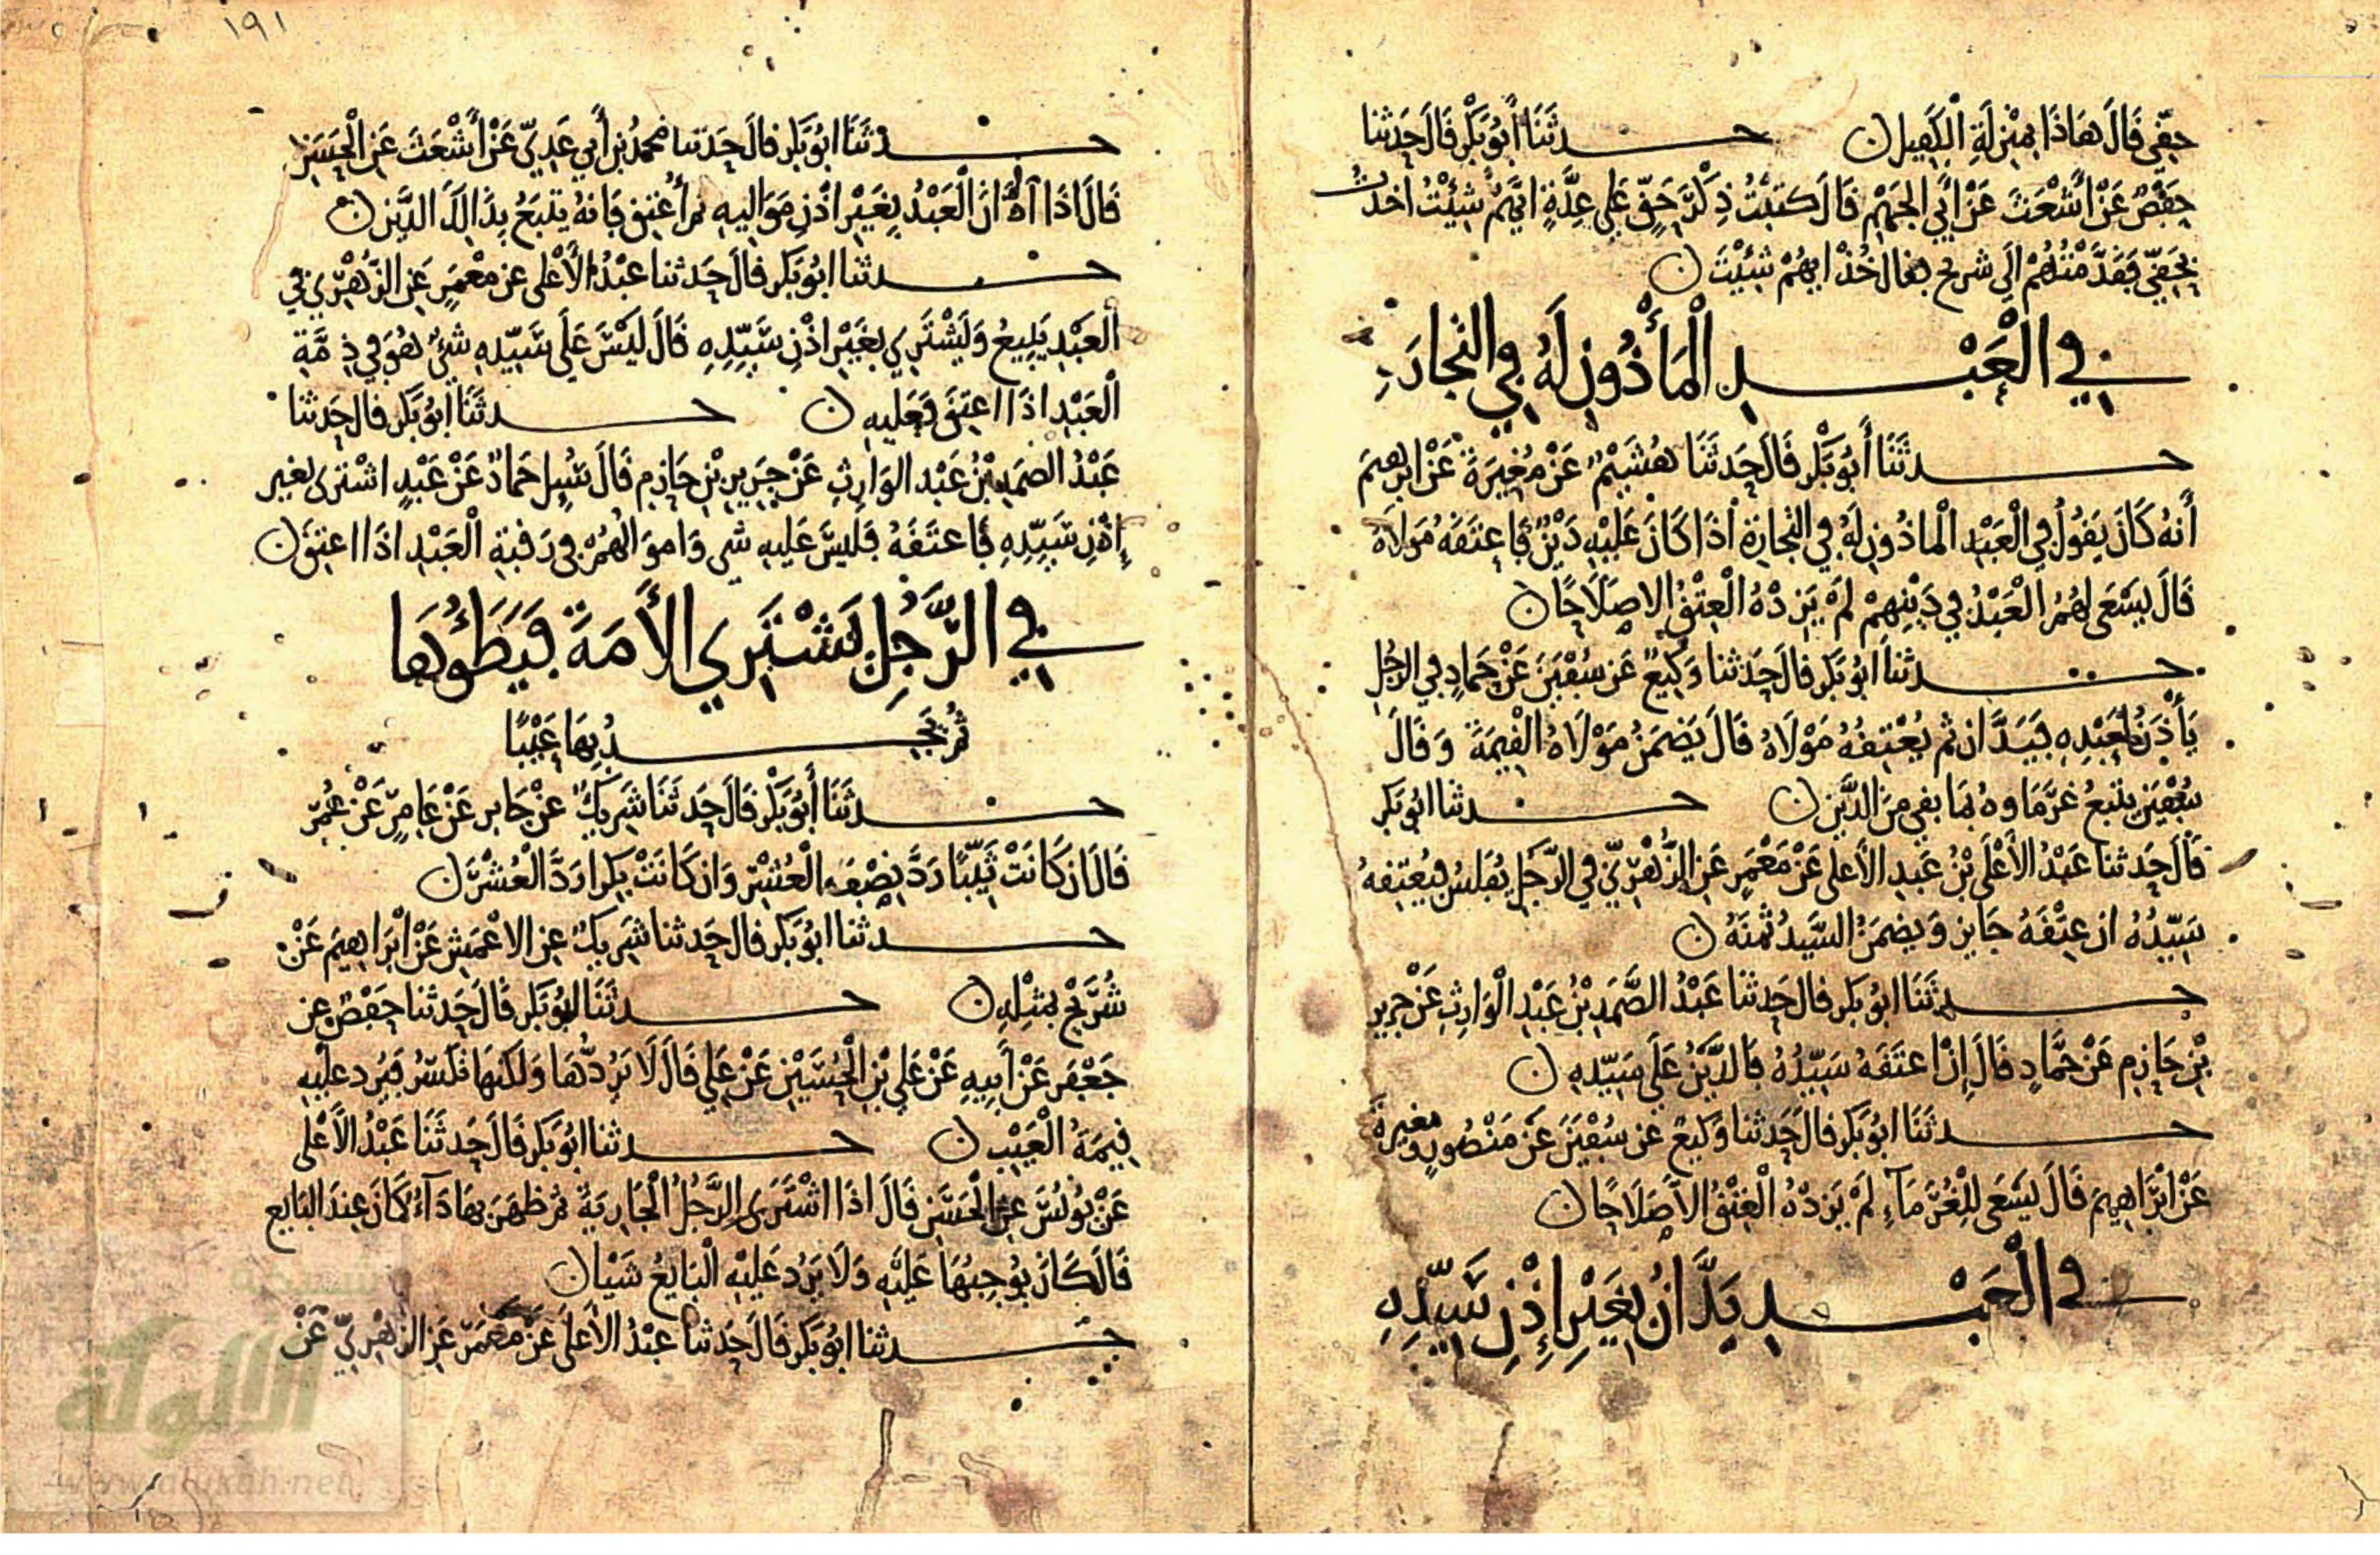 حقي قال هاذا بمنزلة الكفيل ن حدثنا أبو بكر قال حدثنا
حفص عن أشعث عن أبي الجهم قال كتبت ذكر حق على عدة ايهم شئت أخذت
بحقي فقدمتهم الى شريح فقال خذ ايهم شئت ن
في العبد المأذون له في التجارة
حدثنا أبو بكر قال حدثنا هشيم عن مغيرة عن ابرهيم
أنه كان يقول في العبد الماذون له في التجارة اذا كان عليه دين فاعتقه مولاه
قال يسعى لهم العبد في دينهم لم يزده العتق الا صلاحا ن
حدثنا ابو بكر قال حدثنا وكيع عن سفين عن حماد في الرجل
يأذن لعبده فيدان ثم يعتقه مولاه قال يضمن مولاه القيمة وقال
سفين يتبع غرماوه بما بقي من الدين ن حدثنا ابو بكر
قال حدثنا عبد الأعلى بن عبد الأعلى عن معمر عن الزهري في الرجل يفلس فيعتقه
سيده ان عتقه جايز ويضمن السيد ثمنه ن
حدثنا ابو بكر قال حدثنا عبد الصمد بن عبد الوارث عن جرير
بن حازم عن حماد قال إن اعتقه سيده فالدين على سيده ن
حدثنا ابو بكر قال حدثنا وكيع عن سفين عن منصور ومغيرة
عن ابراهيم قال يسعى للغرماء لم يزده العتق الا صلاحا ن
في العبد يدان بغير إذن سيده
١٩١
حدثنا ابو بكر قال حدثنا محمد بن أبي عدي عن أشعث عن الحسن
قال اذا ادان العبد بغير اذن مواليه ثم أعتق فانه يتبع بذالك الدين ن
حدثنا ابو بكر قال حدثنا عبد الأعلى عن معمر عن الزهري في
العبد يبيع ويشتري بغير اذن سيده قال ليس على سيده شئ هو في ذمة
العبد اذا اعتق فعليه ن حدثنا ابو بكر قال حدثنا
عبد الصمد بن عبد الوارث عن جرير بن حازم قال سيل حماد عن عبد اشترى بغير
إذن سيده فاعتقه فليس عليه شي واموالهم في رقبة العبد اذا اعتق ن
في الرجل يشتري الأمة فيطؤها
ثم يجد بها عيبا
حدثنا أبو بكر قال حدثنا شريك عن جابر عن عامر عن عمر
قال ان كانت ثيبا رد نصف العشر وان كانت بكرا رد العشر ن
حدثنا ابو بكر قال حدثنا شريك عن الاعمش عن ابراهيم عن
شريح بمثله ن حدثنا ابو بكر قال حدثنا حفص عن
جعفر عن أبيه عن علي بن الحسين عن علي قال لا يردها ولكنها تكسر فيرد عليه
قيمة العيب ن حدثنا ابو بكر قال حدثنا عبد الأعلى
عن يونس عن الحسن قال اذا اشترى الرجل الجارية ثم ظهر بها داء كان عند البايع
قال كان يوجبها عليه ولا يرد عليه البايع شيا ن
حدثنا ابو بكر قال حدثنا عبد الأعلى عن معمر عن الزهري عن
شبكة
الألوكة
www.alukah.net